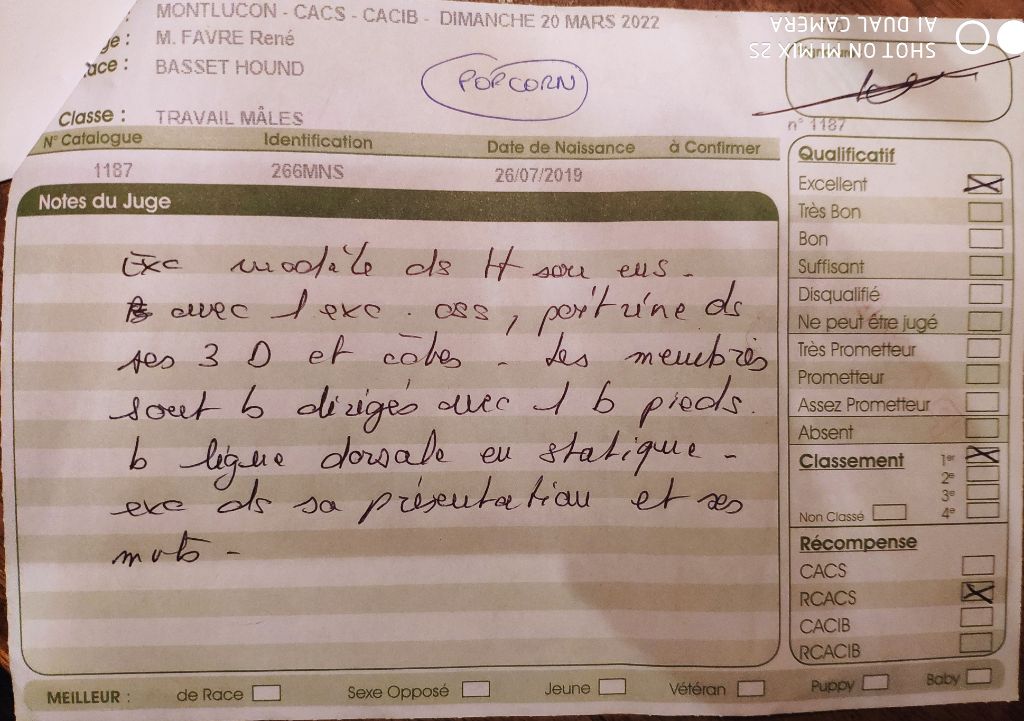 MONTLUCON - CACS - CACIB - DIMANCHE 20 MARS 2022
ge : M. FAVRE René
ace : BASSET HOUND
POPCORN
Classe : TRAVAIL MÂLES
N° Catalogue Identification Date de Naissance à Confirmer
1187 266MNS 26/07/2019
Notes du Juge
Exc modèle ds
avec 1 exc. oss, poitrine ds
ses 3 D et côtes - Les membres
sont b dirigés avec 1 b pieds.
b ligne dorsale en statique -
exc ds sa présentation et ses
mvts -
SHOT ON MI MIX 2S
AI DUAL CAMERA
n° 1187
Qualificatif
Excellent
Très Bon
Bon
Suffisant
Disqualifié
Ne peut être jugé
Très Prometteur
Prometteur
Assez Prometteur
Absent
Classement 1er
2e
3e
Non Classé 4e
Récompense
CACS
RCACS
CACIB
RCACIB
MEILLEUR : de Race Sexe Opposé Jeune Vétéran Puppy Baby